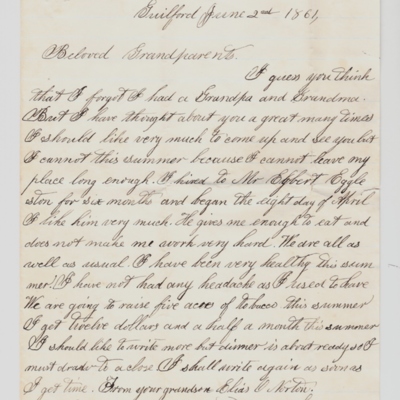 Guilford June 2nd 1861,
Beloved Grandparents.
I guess you think
that I forgot I had a Grandpa and Grandma.
But I have thought about you a great many times
I should like very much to come up and see you but
I cannot this summer because I cannot leave my
place long enough. I hired to Mr Egbert Eggle
ston for six months and began the eight day of April
I like him very much. He gives one enough to eat and
does not make me work very hard. We are all as
well as usual. I have been very healthy this sum
mer. I have not had any headacks as I used to have
We are going to raise five aces of tobacco this summer
I got twelve dollars and a half a month this summer
I should like to write more but dinner is about ready so I
must draw to a close I shall write again as soon as
I get time. From your grandson Elias O Norton,